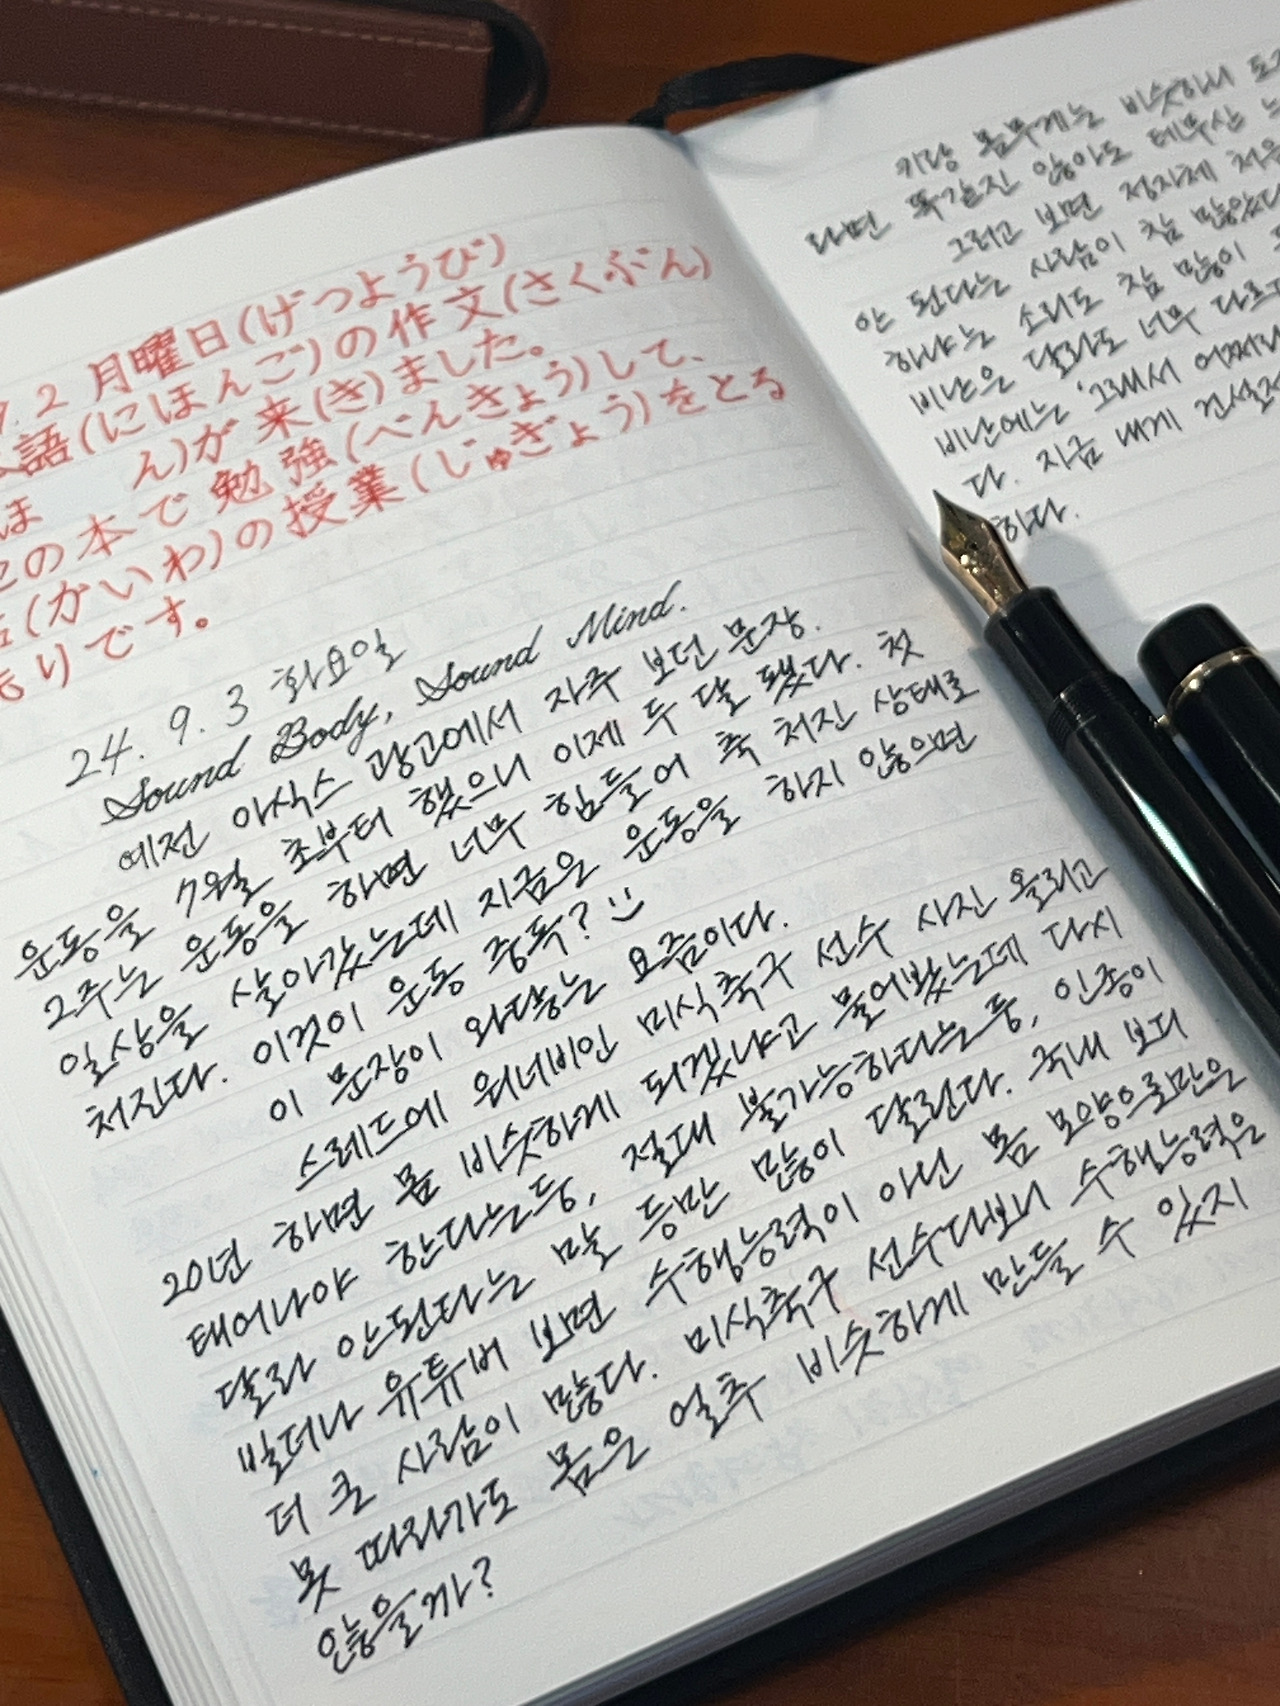 9.2 月曜日(げつようび)
語(にほんご)の作文(さくぶん)
ほ ん)が来(き)ました。
の本で勉強(べんきょう)して、
(かいわ)の授業(じゅぎょう)をとる
りです。
24. 9. 3 화요일
Sound Body, Sound Mind.
예전 아식스 광고에서 자주 보던 문장.
운동을 7월 초부터 했으니 이제 두 달 됐다. 첫
2주는 운동을 하면 너무 힘들어 축 처진 상태로
일상을 살아갔는데 지금은 운동을 하지 않으면
처진다. 이것이 운동 중독? :)
이 문장이 와닿는 요즘이다.
스레드에 워너비인 미식축구 선수 사진 올리고
20년 하면 몸 비슷하게 되겠냐고 물어봤는데 다시
태어나야 한다는둥, 절대 불가능하다는둥, 인종이
달라 안된다는 말 등만 많이 달린다. 국내 보디
빌더나 유튜버 보면 수행능력이 아닌 몸 모양으로만은
더 큰 사람이 많다. 미식축구 선수다보니 수행능력은
못 따라가도 몸은 얼추 비슷하게 만들 수 있지
않을까?
키랑 몸무게는 비슷해서
라면 똑같진 않아도 테무산
그러고 보면 정자체 처음
안 된다는 사람이 참 많았다
하는 소리도 참 많이
비난은 달라도 너무 다르
비난에는 '그래서 어쩌라
다. 지금 내게 건설적
하다.